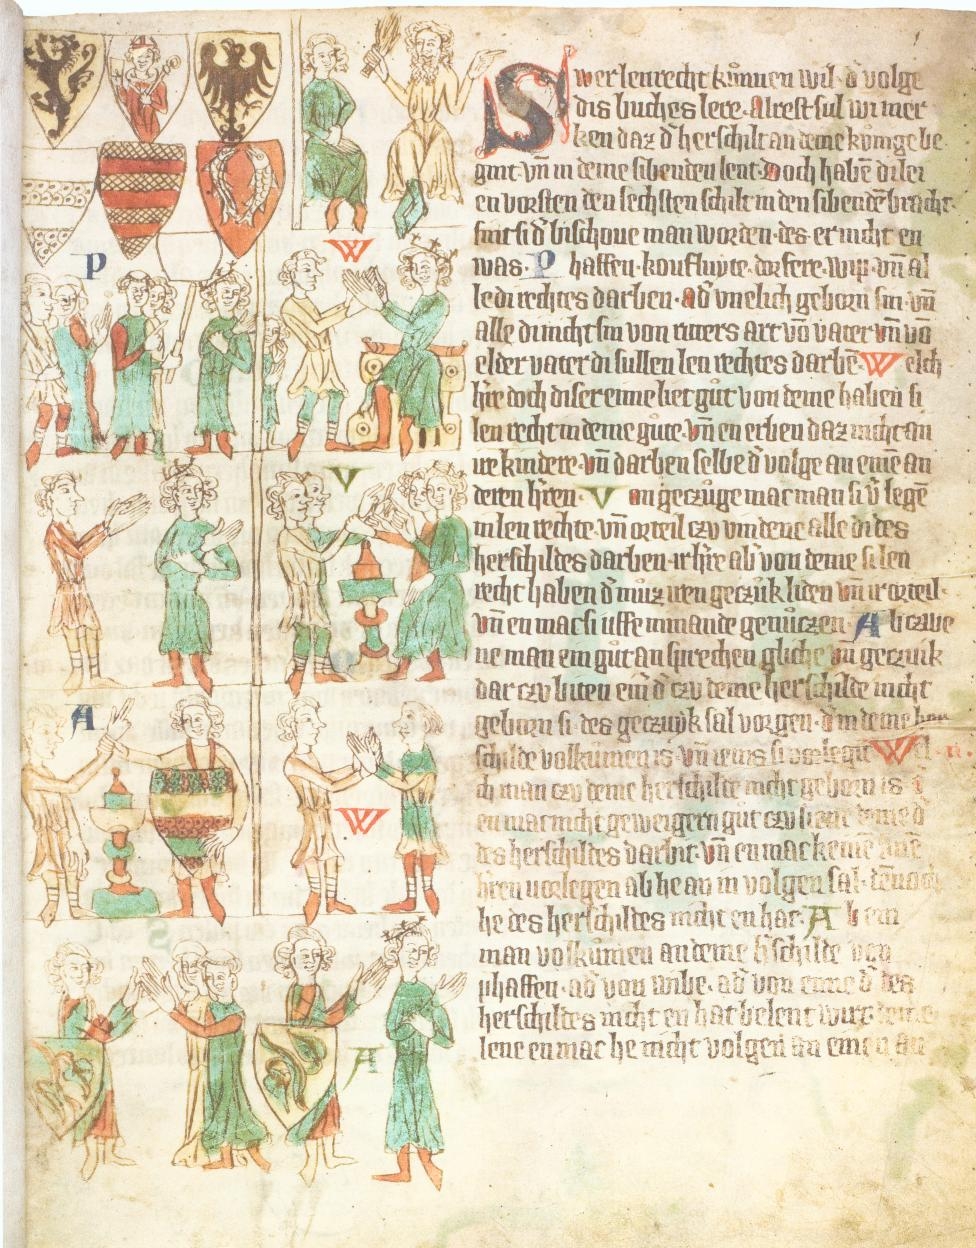 Swer lenrecht kunnen wil d' volge
dis buches lere. Alrest sul wi mer
ken daz d' herschilt an deme kunige be
gint. vn̄ in deme sibenden lent. Doch habē di lei
en vorsten den sechsten schilt in den sibendē bracht.
sint si d' bischoue man worden. des er nicht en
was. P haffen. koufluyte. dorfere. wip. vn̄ al
le di rechtes darben. ad' vnelich geborn sin. vn̄
alle di nicht sin von ritters art vō vater vn̄ vō
elder vater di sullen len rechtes darbē. W elch
h're doch diser eime liet gut von deme haben si
len recht in deme gute. vn̄ en erben daz nicht an
ire kindere. vn̄ darben selbe d' volge an eime an
deren h'ren. V on geczuge mac man si v'legē
in len rechte. vn̄ orteil czu vindene alle di des
herschildes darben. ir h're ab' von deme si len
recht haben d' muz iren geczuk liden vn̄ ir orteil.
vn̄ en mac si uffe nimande genuczen. A b czwe
ne man ein gut an sprechen gliche vn̄ geczuik
dar czu biten ein d' czu deme herschilde nicht
geborn si. des geczuyk sal vorgen. d' in deme her
schilde volkumen is. vn̄ ienis si vorlegit Wel
ch man czu deme herschilde nicht geborn is
en mac nicht geweigern gut czu liene deme d'
des herschildes darbit. vn̄ en mac keime
h'ren vorlegen ab he an in volgen sal.
he des herschildes nicht en hat. A b ein
man volkumen an deme h'schilde von
phaffen. ad' von wibe. ad' von eime d' des
herschildes nicht en hat belent wirt deme
lene en mac he nicht volgen an einen an
P
W
V
A
W
A